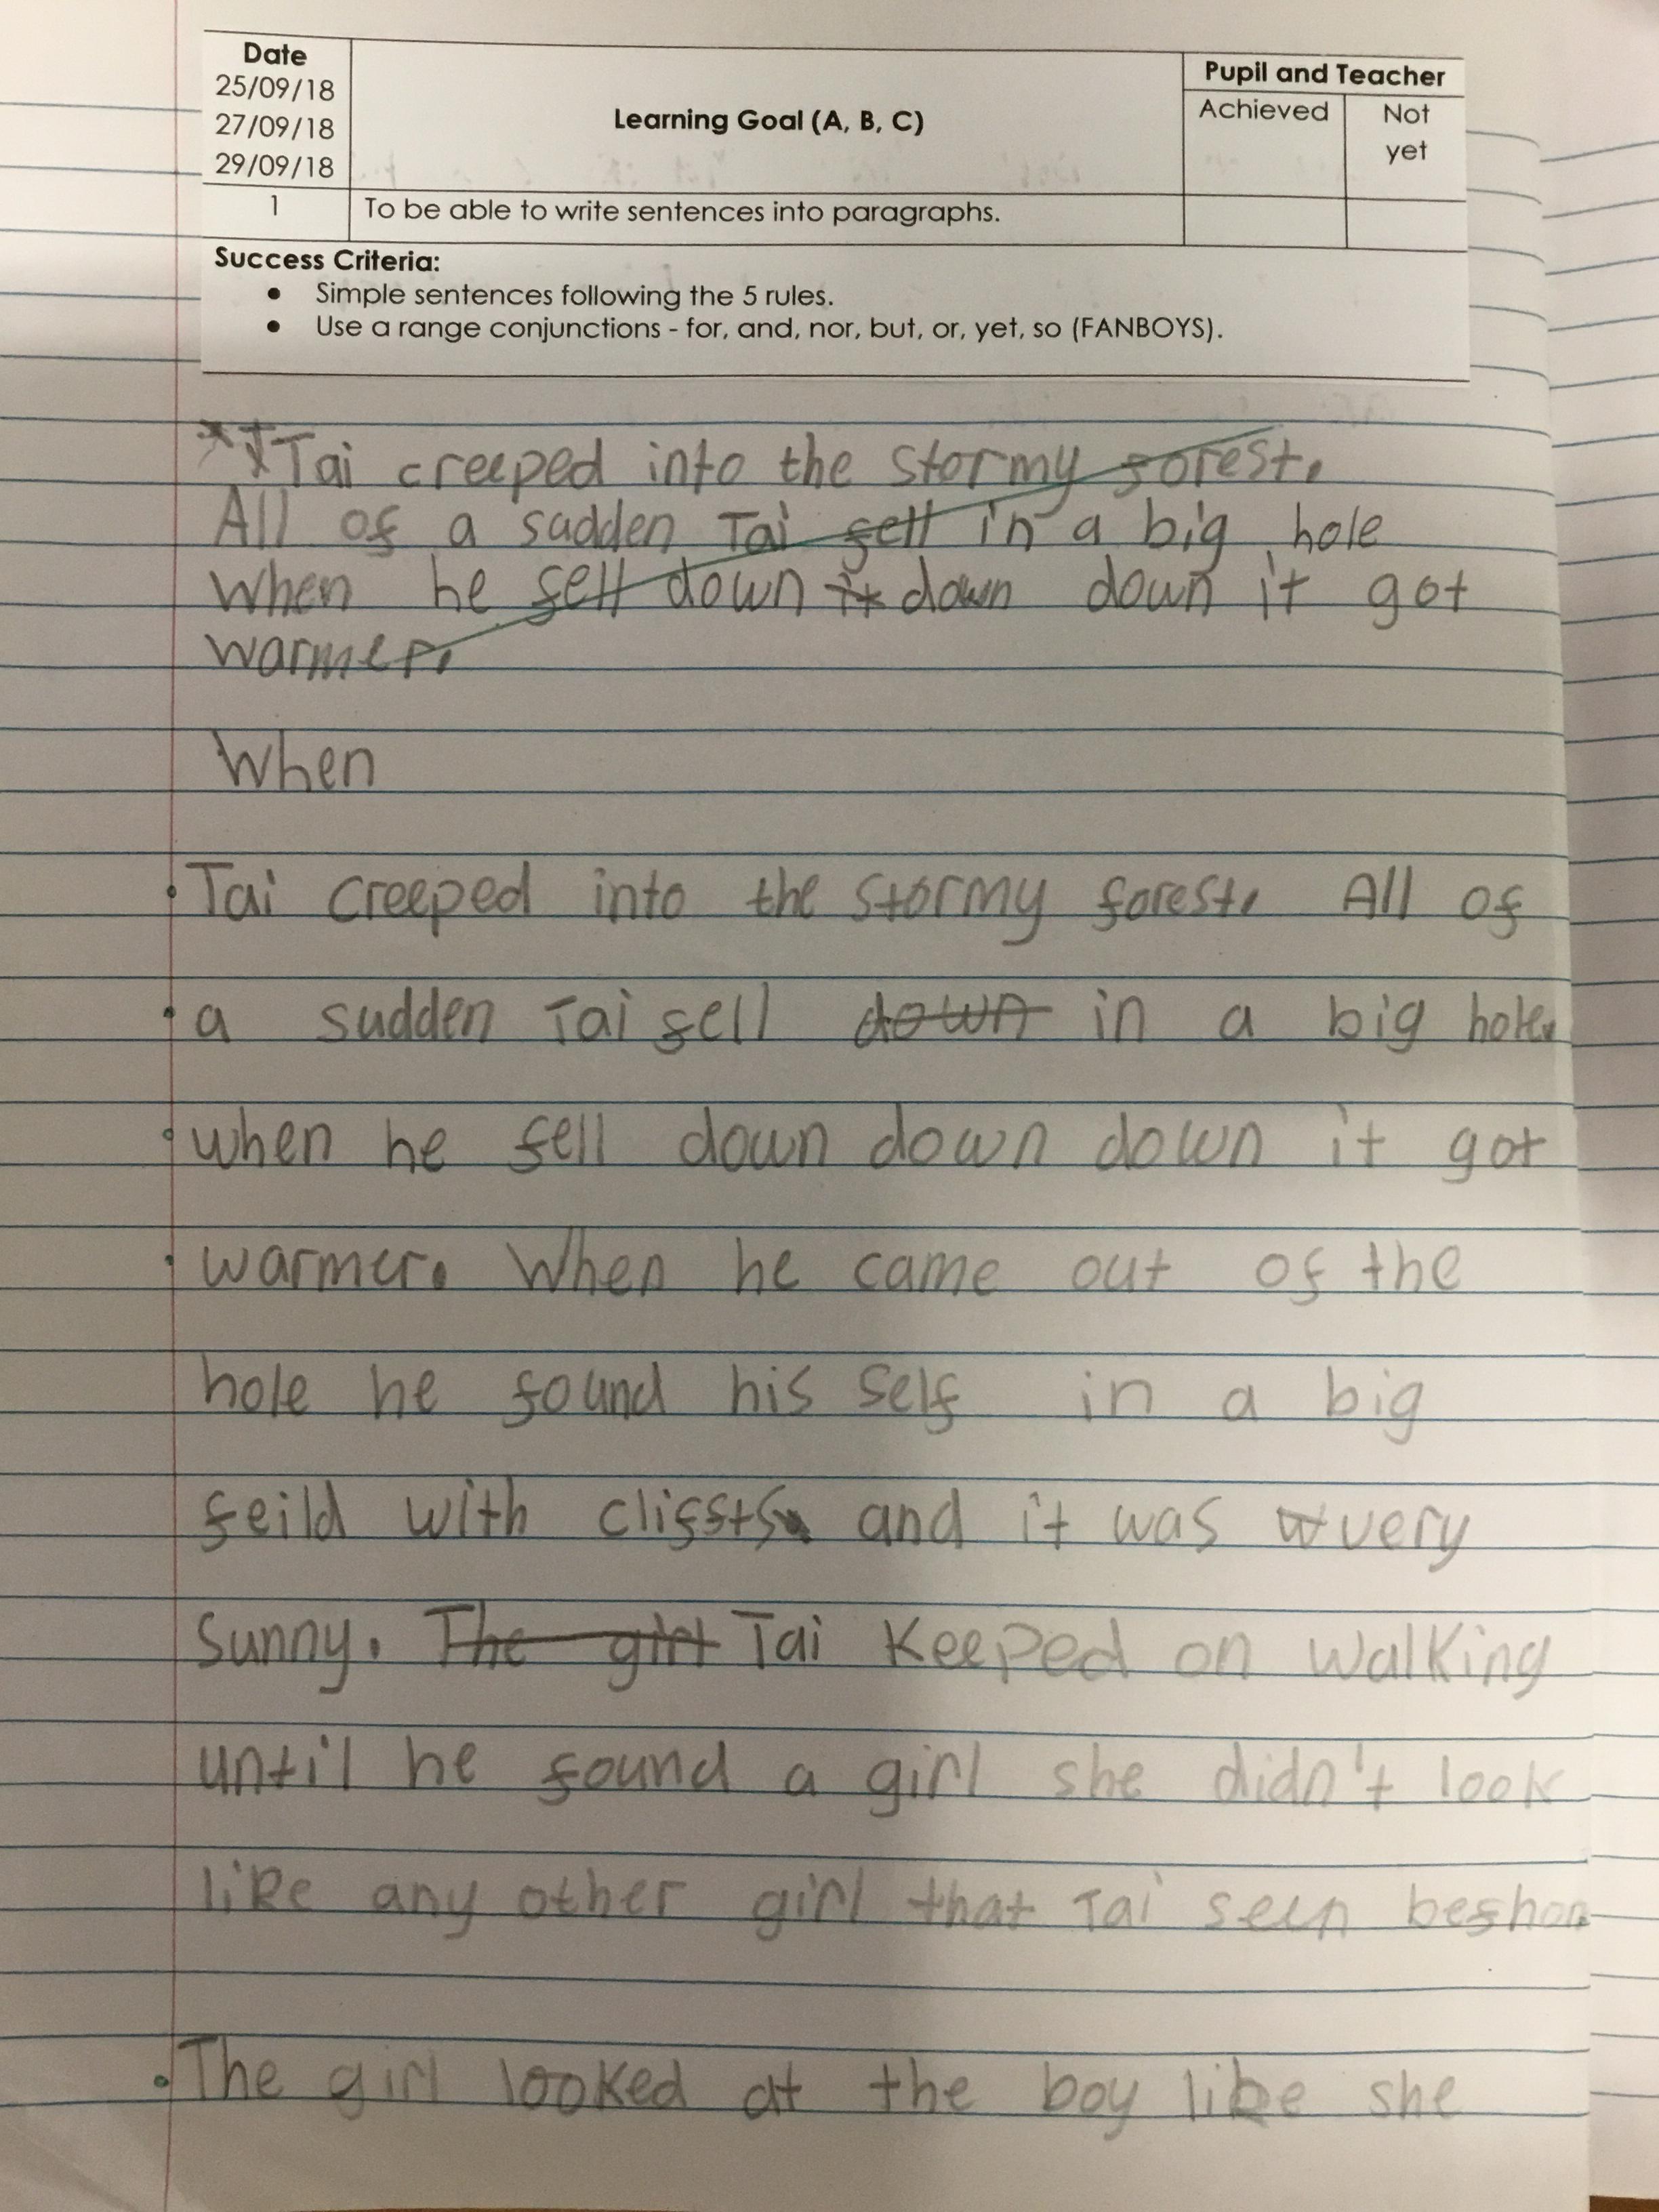 Date
25/09/18
27/09/18
29/09/18
Learning Goal (A, B, C)
Pupil and Teacher
Achieved
Not
yet
1
To be able to write sentences into paragraphs.
Success Criteria:
• Simple sentences following the 5 rules.
• Use a range conjunctions - for, and, nor, but, or, yet, so (FANBOYS).
Tai creeped into the stormy forest.
All of a sudden Tai fell in a big hole
when he fell down it down down it got
warmer.
When
Tai creeped into the stormy forest. All of
a sudden Tai fell down in a big hole.
when he fell down down down it got
warmer. When he came out of the
hole he found his self in a big
feild with and it was very
sunny. The girl Tai Keeped on walking
until he found a girl she didn't look
like any other girl that Tai seen
The girl looked at the boy like she